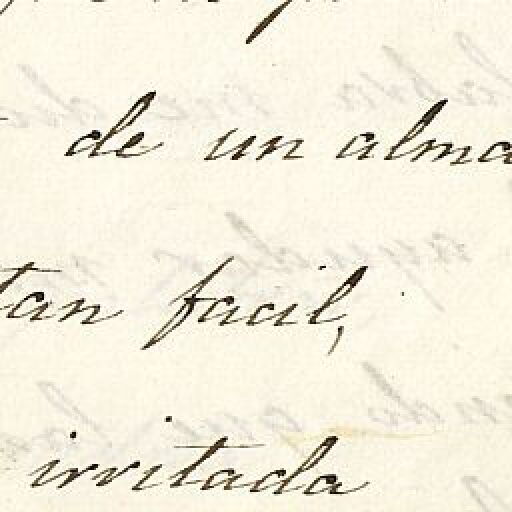 de un alma
tan facil,
irritada